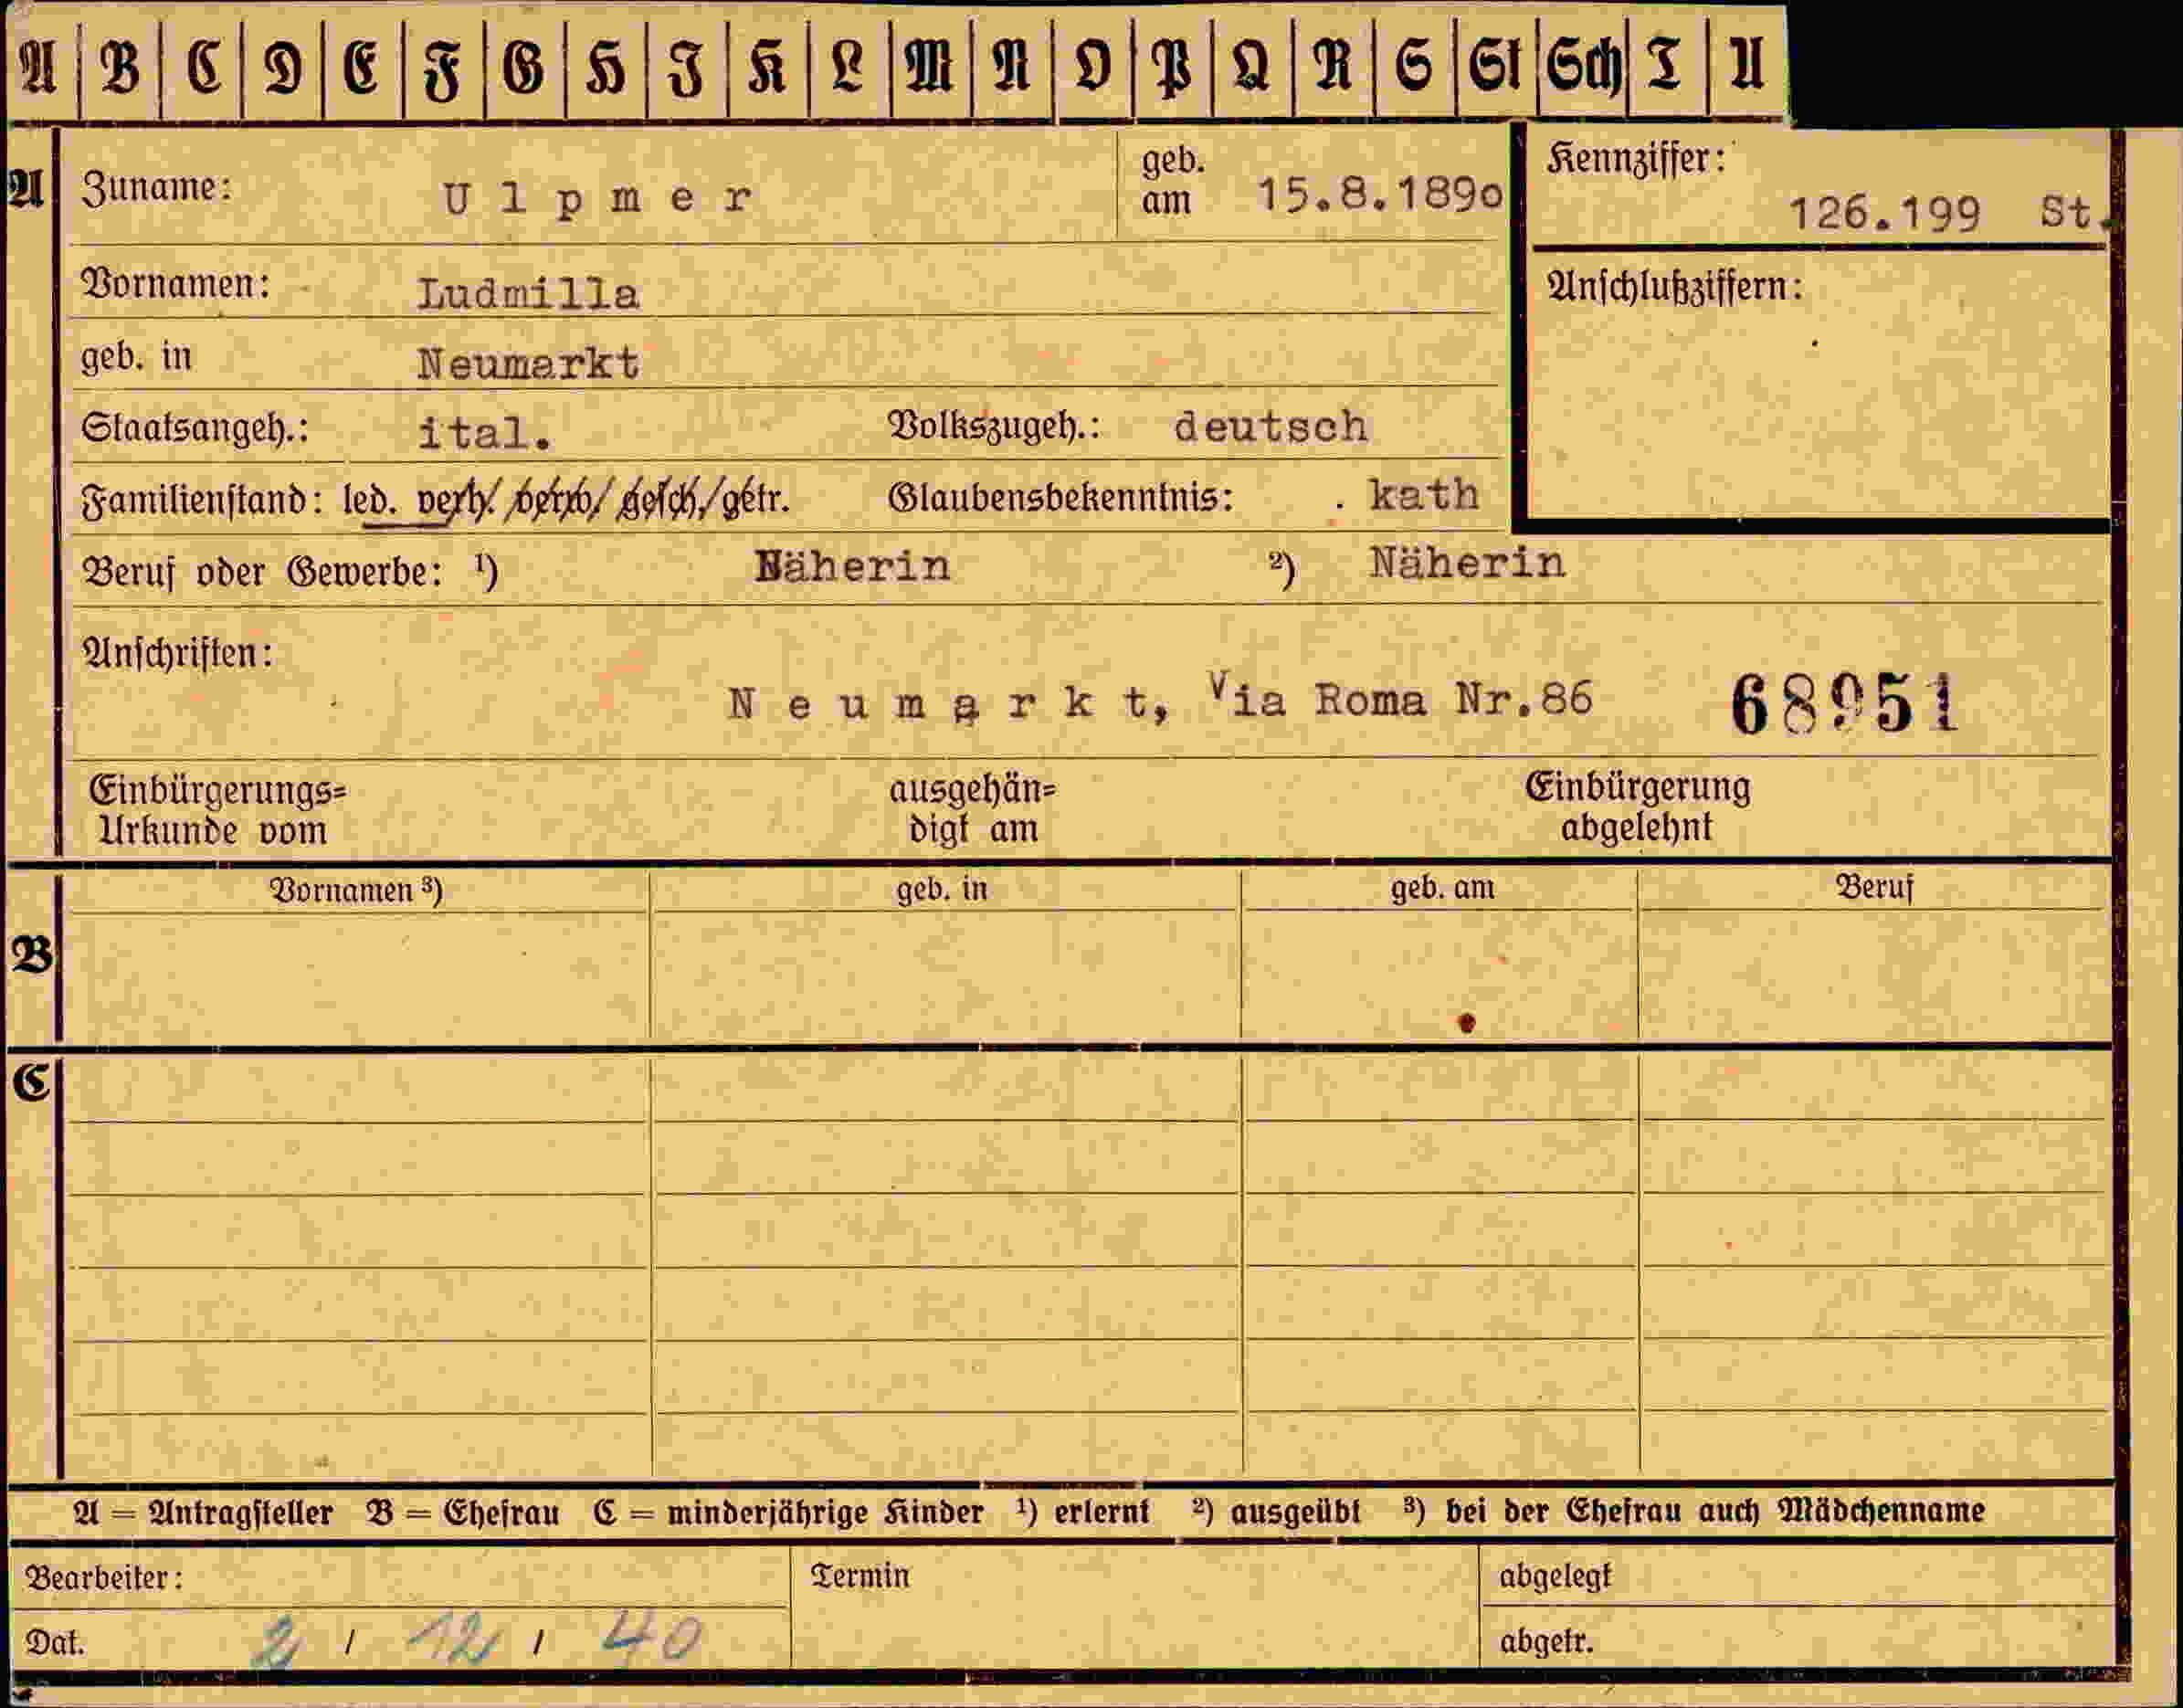 A B C D E F G H I K L M N O P Q R S St Sch T U
A Zuname: Ulpmer geb. am 15.8.1890 Kennziffer: 126.199 St.
Vornamen: Ludmilla Anschlußziffern:
geb. in Neumarkt
Staatsangeh.: ital. Volkszugeh.: deutsch
Familienstand: led. verh. verw. gesch. getr. Glaubensbekenntnis: kath
Beruf oder Gewerbe: ¹) Näherin ²) Näherin
Anschriften:
Neumarkt, Via Roma Nr.86 68951
Einbürgerungs= ausgehän= Einbürgerung
Urkunde vom digt am abgelehnt
B Vornamen ³) geb. in geb. am Beruf
C
A = Antragsteller B = Ehefrau C = minderjährige Kinder ¹) erlernt ²) ausgeübt ³) bei der Ehefrau auch Mädchenname
Bearbeiter: Termin abgelegt
Dat. 2 / 12 / 40 abgetr.